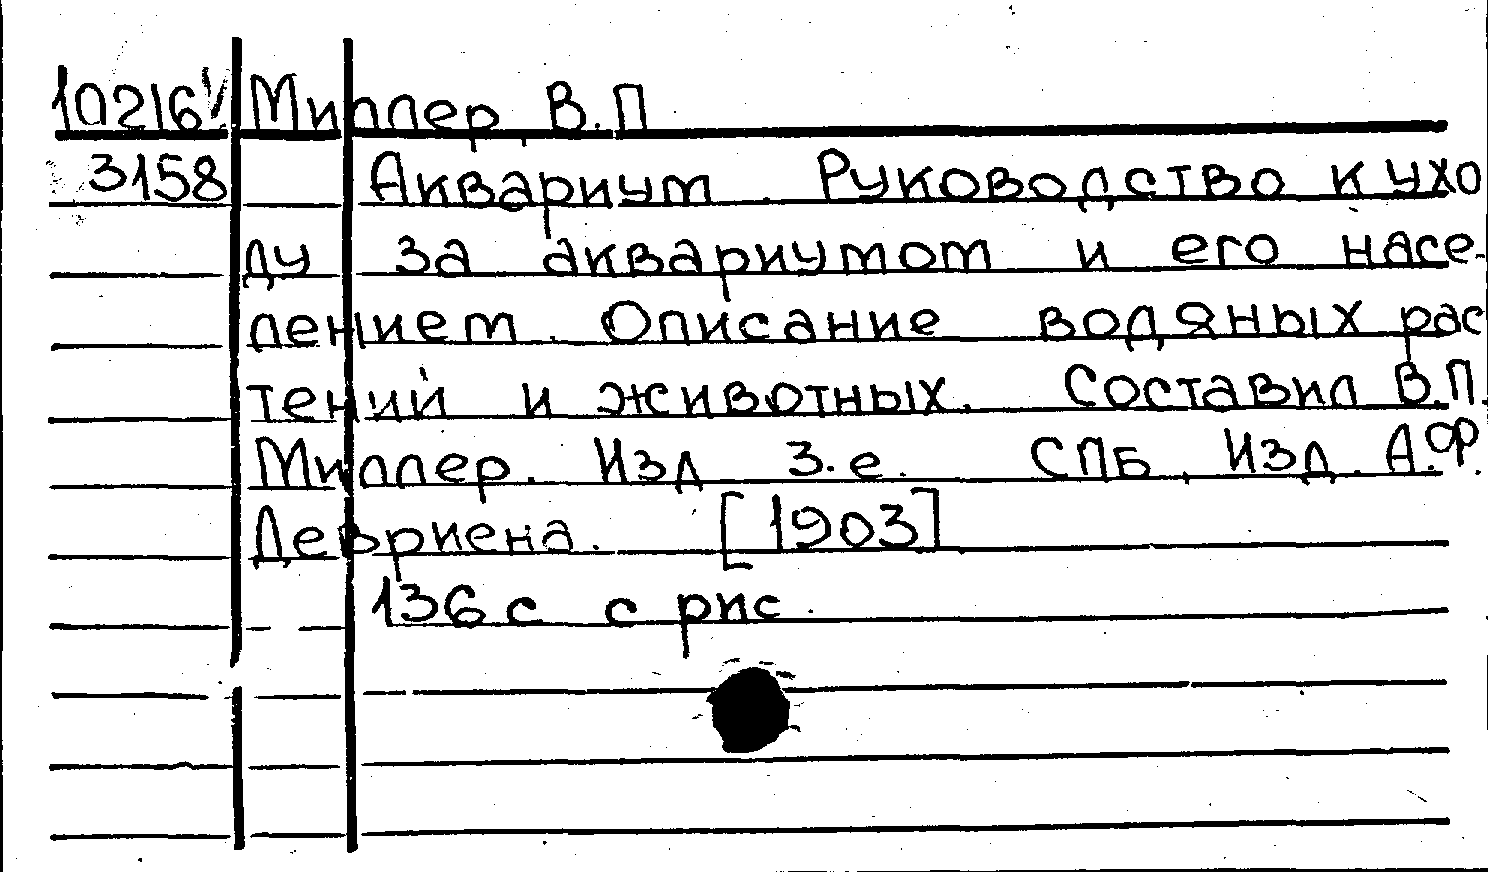 10216 Миллер В.П
3158 Аквариум. Руководство к ухо
ду за аквариумом и его насе-
лением. Описание водяных рас
тений и животных. Составил В.П.
Миллер. Изд 3.е. СПБ, Изд. А.Ф.
Девриена. [1903]
136 с с рис.